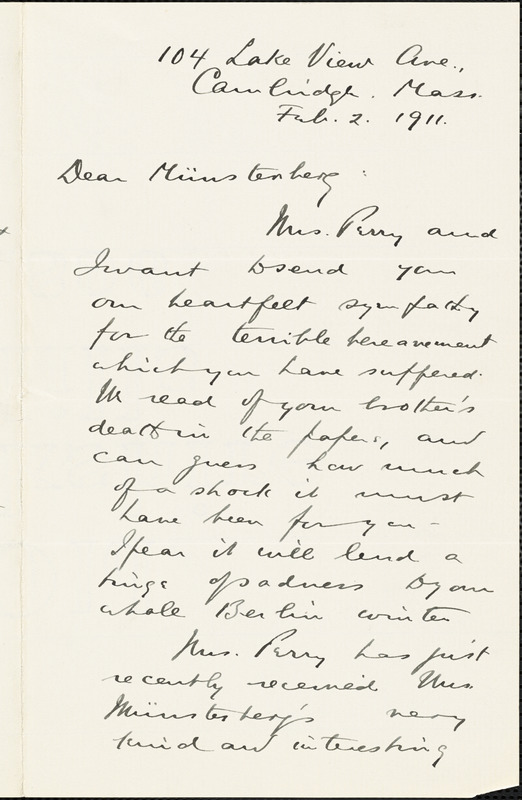 104 Lake View Ave.,
Cambridge. Mass.
Feb. 2. 1911.
Dear Münsterberg:
Mrs. Perry and
I want to send you
our heartfelt sympathy
for the terrible bereavement
which you have suffered.
We read of your brother's
death in the papers, and
can guess how much
of a shock it must
have been for you -
I fear it will lend a
tinge of sadness to your
whole Berlin winter
Mrs. Perry has just
recently received Mrs.
Münsterberg's very
kind and interesting